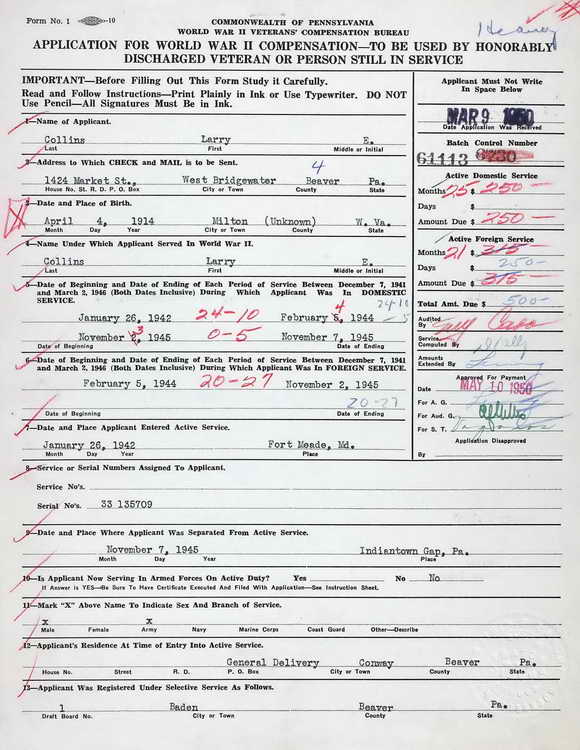 Form No. 1 10
COMMONWEALTH OF PENNSYLVANIA
WORLD WAR II VETERANS' COMPENSATION BUREAU
APPLICATION FOR WORLD WAR II COMPENSATION—TO BE USED BY HONORABLY
DISCHARGED VETERAN OR PERSON STILL IN SERVICE
IMPORTANT—Before Filling Out This Form Study it Carefully.
Read and Follow Instructions—Print Plainly in Ink or Use Typewriter. DO NOT
Use Pencil—All Signatures Must Be in Ink.
Applicant Must Not Write
In Space Below
MAR 9 1950
Date Application Was Received
Batch Control Number
61113 6230
1—Name of Applicant.
Collins Larry E.
Last First Middle or Initial
2—Address to Which CHECK and MAIL is to be Sent.
4
1424 Market St., West Bridgewater Beaver Pa.
House No. St. R. D. P. O. Box City or Town County State
3—Date and Place of Birth.
April 4, 1914 Milton (Unknown) W. Va.
Month Day Year City or Town County State
4—Name Under Which Applicant Served In World War II.
Collins Larry E.
Last First Middle or Initial
5—Date of Beginning and Date of Ending of Each Period of Service Between December 7, 1941
and March 2, 1946 (Both Dates Inclusive) During Which Applicant Was In DOMESTIC
SERVICE.
24-10
January 26, 1942 24-10 February 4, 1944
November 3, 1945 0-5 November 7, 1945
Date of Beginning Date of Ending
6—Date of Beginning and Date of Ending of Each Period of Service Between December 7, 1941
and March 2, 1946 (Both Dates Inclusive) During Which Applicant Was In FOREIGN SERVICE.
February 5, 1944 20-27 November 2, 1945
20-27
Date of Beginning Date of Ending
7—Date and Place Applicant Entered Active Service.
January 26, 1942 Fort Meade, Md.
Month Day Year Place
Active Domestic Service
Months 25 $ 250—
Days $
Amount Due $ 250—
Active Foreign Service
Months 21 $ 315—
Days $ 250-
Amount Due $ 315—
Total Amt. Due $ 500—
Audited
By
Service
Computed By
Amounts
Extended By
Approved For Payment
Date MAY 10 1950
For A. G.
For Aud. G.
For S. T.
Application Disapproved
By
8—Service or Serial Numbers Assigned To Applicant.
Service No's.
Serial No's. 33 135709
9—Date and Place Where Applicant Was Separated From Active Service.
November 7, 1945 Indiantown Gap, Pa.
Month Day Year Place
10—Is Applicant Now Serving In Armed Forces On Active Duty? Yes No No
If Answer is YES—Be Sure To Have Certificate Executed And Filed With Application—See Instruction Sheet.
11—Mark "X" Above Name To Indicate Sex And Branch of Service.
x x
Male Female Army Navy Marine Corps Coast Guard Other—Describe
12—Applicant's Residence At Time of Entry Into Active Service.
General Delivery Conway Beaver Pa.
House No. Street R. D. P. O. Box City or Town County State
13—Applicant Was Registered Under Selective Service As Follows.
1 Baden Beaver Pa.
Draft Board No. City or Town County State